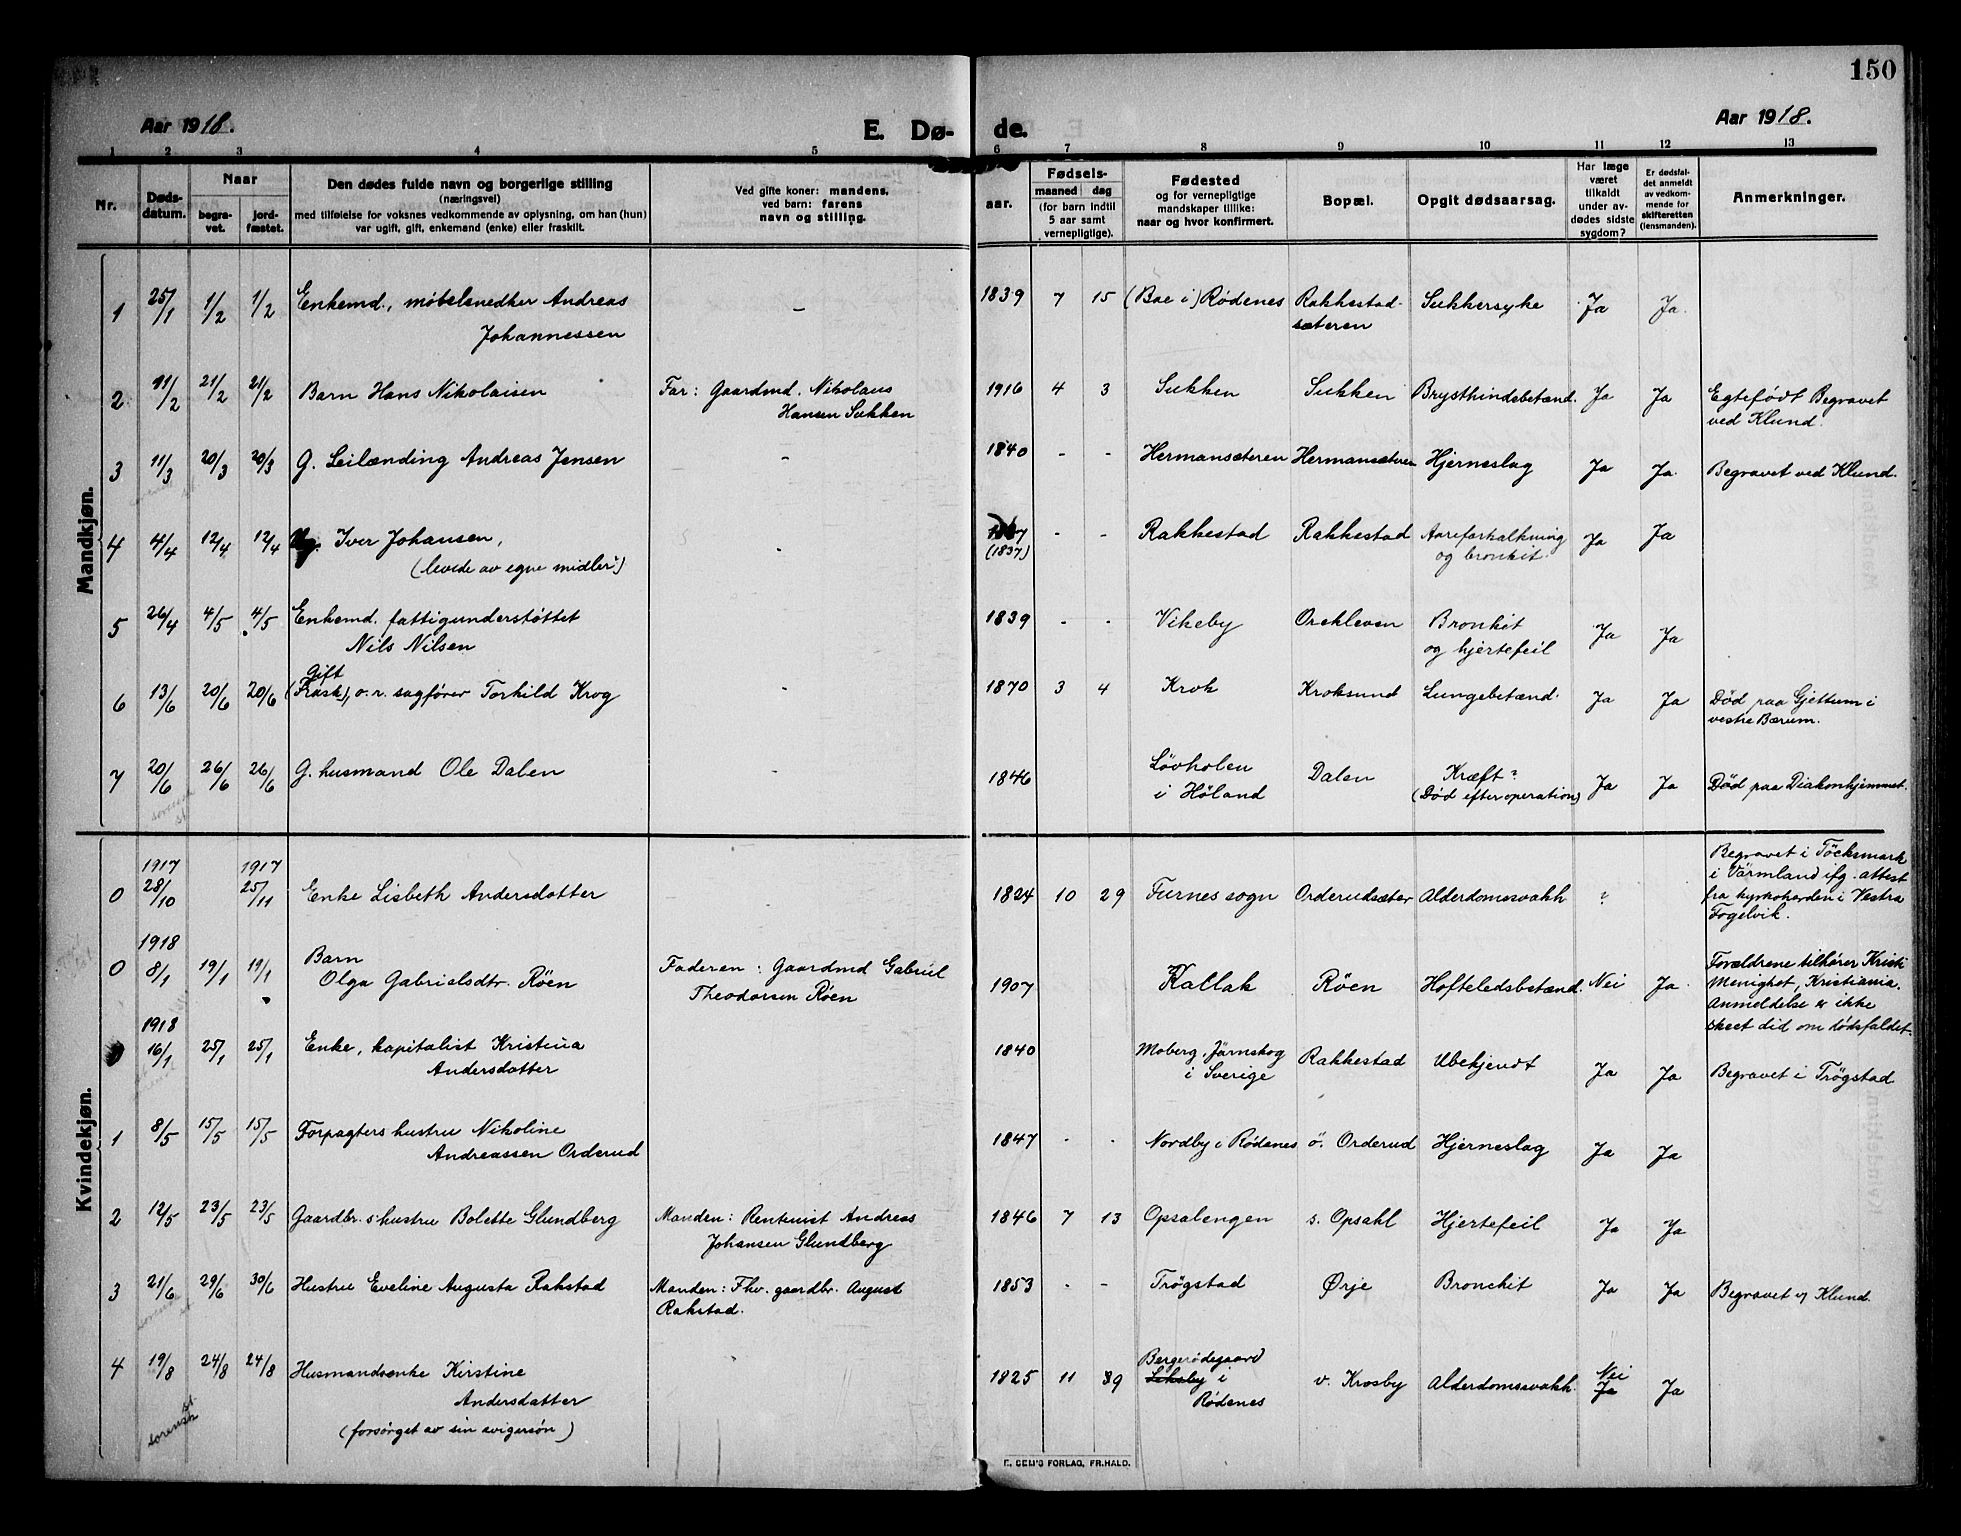 150
Aar 1918.
E. Dø- de.
Aar 1918.
1 2 3 4 5 6 7 8 9 10 11 12 13
Nr.
Døds-
datum.
Naar
begra-
vet.
jord-
fæstet.
Den dødes fulde navn og borgerlige stilling
(næringsvei)
med tilføielse for voksnes vedkommende av oplysning, om han (hun)
var ugift, gift, enkemand (enke) eller fraskilt.
Ved gifte koner: mandens,
ved barn: farens
navn og stilling.
Fødsels-
aar.
maaned dag
(for barn indtil
5 aar samt
vernepligtige).
Fødested
og for vernepligtige
mandskaper tillike:
naar og hvor konfirmert.
Bopæl.
Opgit dødsaarsag.
Har læge
været
tilkaldt
under av-
dødes sidste
sygdom?
Er dødsfal-
det anmeldt
av vedkom-
mende for
skifteretten
(lensmanden).
Anmerkninger.
Mandkjøn.
1 25/1 1/2 1/2 Enkemd., møbelsnedker Andreas
Johannessen
— 1839 7 15 (Bae i) Rødenes Rakkestad-
sæteren
Sukkersyke Ja Ja.
2 11/2 21/2 21/2 Barn Hans Nikolaisen Far: Gaardmd. Nikolaus
Hansen Sukken
1916 4 3 Sukken Sukken Brysthindebetænd. Ja Ja Egtefødt Begravet
ved Klund.
3 11/3 20/3 20/3 G. Leilænding Andreas Jensen - 1840 - - Hermansæteren Hermansæteren Hjerneslag Ja Ja. Begravet ved Klund.
4 4/4 12/4 12/4 Ug. Iver Johansen,
(levede av egne midler)
- (1837) - - Rakkestad Rakkestad Aareforkalkning
og bronkit.
Ja Ja
5 26/4 4/5 4/5 Enkemd. fattigunderstøttet
Nils Nilsen
1839 - - Vikeby Orekleven Bronkit
og hjertefeil
Ja Ja
6 13/6 20/6 20/6 Gift
(Frask), o.r. sagfører Torhild Krog
- 1870 3 4 Krok Kroksund Lungebetænd. Ja Ja Død paa Gjettum i
vestre Bærum.
7 20/6 26/6 26/6 G. husmand Ole Dalen 1846 Løvholen
i Høland
Dalen Kræft?
(Død efter operation)
Ja Ja Død paa Diakonhjemmet.
Kvindekjøn.
0 1917
28/10
1917
25/11
Enke Lisbeth Andersdotter 1824 10 29 Furnes sogn Orderudsæter Alderdomssvakh ? Begravet i Töcksmark
i Värmland ifg. attest
fra kyrkoherden i Vestra
Fogelvik.
0 1918
8/1 19/1 19/1 Barn
Olga Gabrielsdtr. Röen
Faderen: Gaardmd Gabriel
Theodorsen Röen
1907 Kallak Röen Hofteledsbetænd. Nei Ja. Forældrene tilhører Kristi
Menighet, Kristiania.
Anmeldelse er ikke
skeet did om dødsfaldet.
1918
16/1 25/1 25/1 Enke, kapitalist Kristina
Andersdotter
1840 Moberg, Järnskog
i Sverige
Rakkestad Ubekjendt Ja Ja Begravet i Trøgstad
1 8/5 15/5 15/5 Forpagters hustru Nikoline
Andreassen Orderud
1847 - - Nordby i Rødenes ö. Orderud Hjerneslag Ja Ja
2 12/5 23/5 23/5 Gaardbr.s hustru Bolette Glundberg Manden: Rentenist Andreas
Johansen Glundberg
1846 7 13 Opsalengen s. Opsahl Hjertefeil Ja Ja
3 21/6 29/6 30/6 Hustru Eveline Augusta Rakstad Manden: Fhv. gaardbr. August
Rakstad.
1853 - - Trøgstad Ørje Bronchit Ja Ja Begravet v/ Klund.
4 19/8 24/8 24/8 Husmandsenke Kirstine
Andersdatter
(forsørget av sin svigersøn)
1825 11 Bergerødegaard
i
Rødenes
v. Krosby Alderdomssvakh. Nei
Ja
Ja
E. SEM'S FORLAG, FR.HALD.